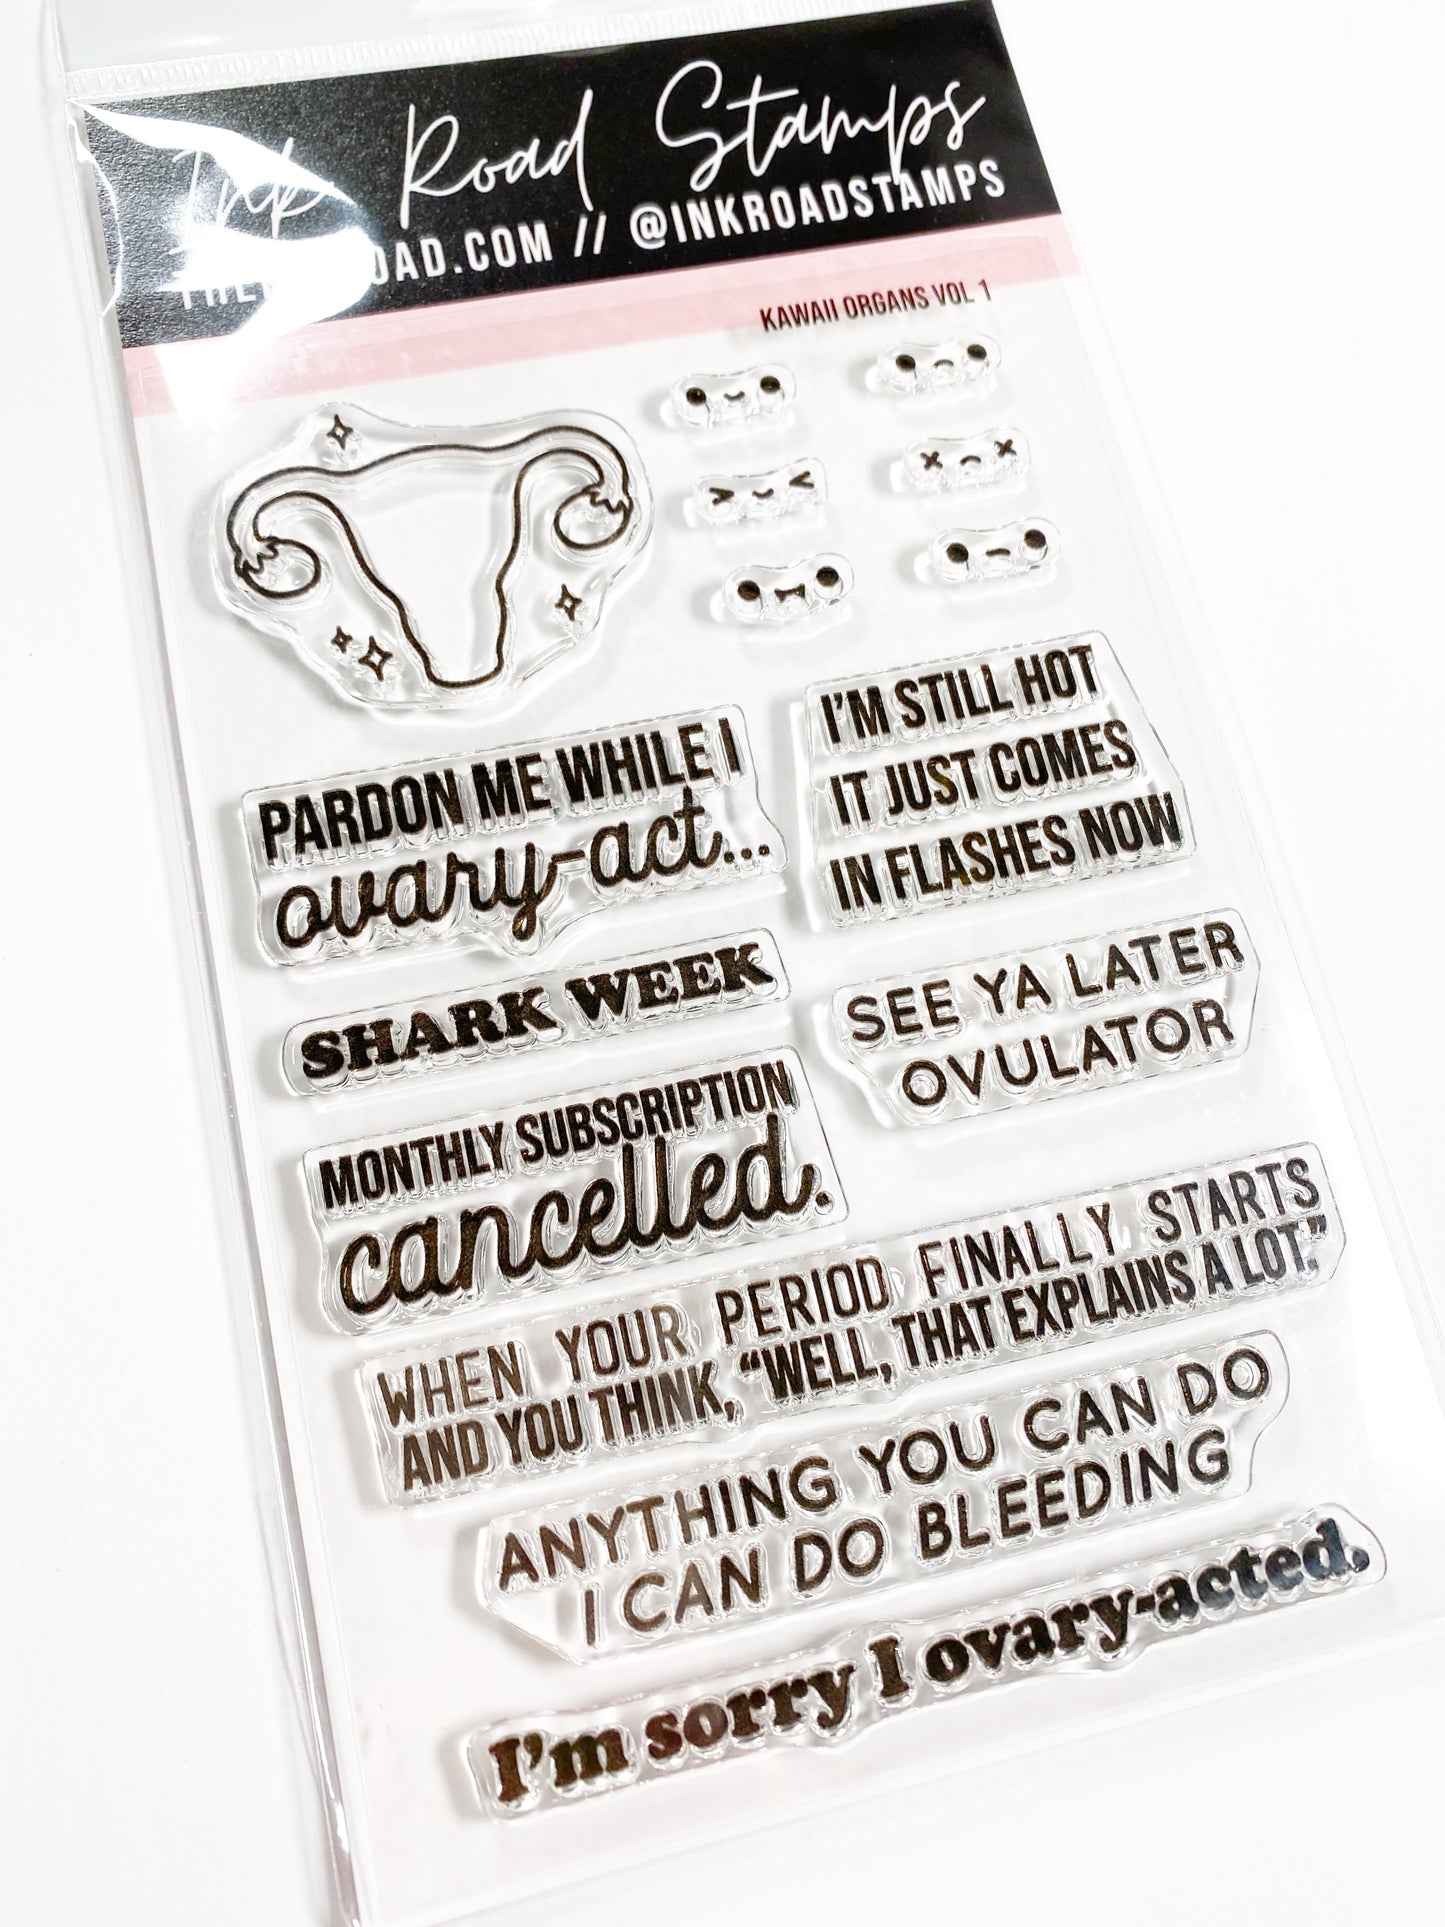 Ink Road Stamps
.COM // @INKROADSTAMPS
KAWAII ORGANS VOL 1
PARDON ME WHILE I
ovary-act...
I'M STILL HOT
IT JUST COMES
IN FLASHES NOW
SHARK WEEK
SEE YA LATER
OVULATOR
MONTHLY SUBSCRIPTION
cancelled.
WHEN YOUR PERIOD FINALLY STARTS
AND YOU THINK, “WELL, THAT EXPLAINS A LOT.”
ANYTHING YOU CAN DO
I CAN DO BLEEDING
I'm sorry I ovary-acted.